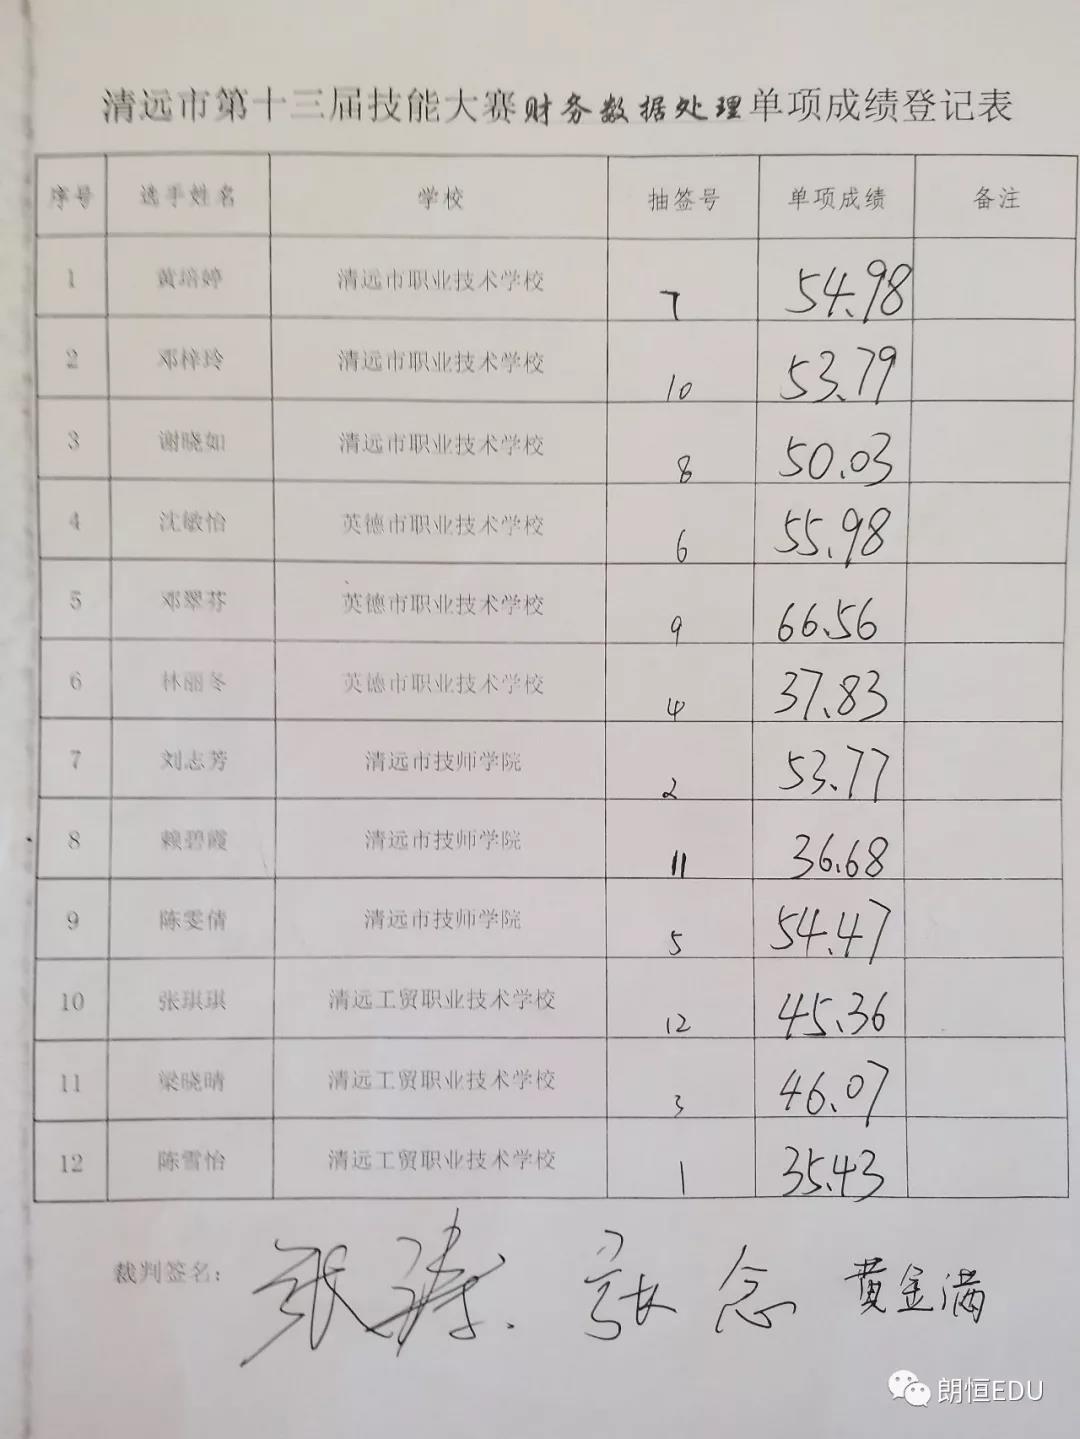 清远市第十三届技能大赛财务数据处理单项成绩登记表
序号 选手姓名 学校 抽签号 单项成绩 备注
1 黄培婷 清远市职业技术学校 7 54.98
2 邓梓玲 清远市职业技术学校 10 53.79
3 谢晓如 清远市职业技术学校 8 50.03
4 沈敏怡 英德市职业技术学校 6 55.98
5 邓翠芬 英德市职业技术学校 9 66.56
6 林丽冬 英德市职业技术学校 4 37.83
7 刘志芳 清远市技师学院 2 53.77
8 赖碧霞 清远市技师学院 11 36.68
9 陈雯倩 清远市技师学院 5 54.47
10 张琪琪 清远工贸职业技术学校 12 45.36
11 梁晓晴 清远工贸职业技术学校 3 46.07
12 陈雪怡 清远工贸职业技术学校 1 35.43
裁判签名: 张涛 张念 黄金满
朗恒EDU